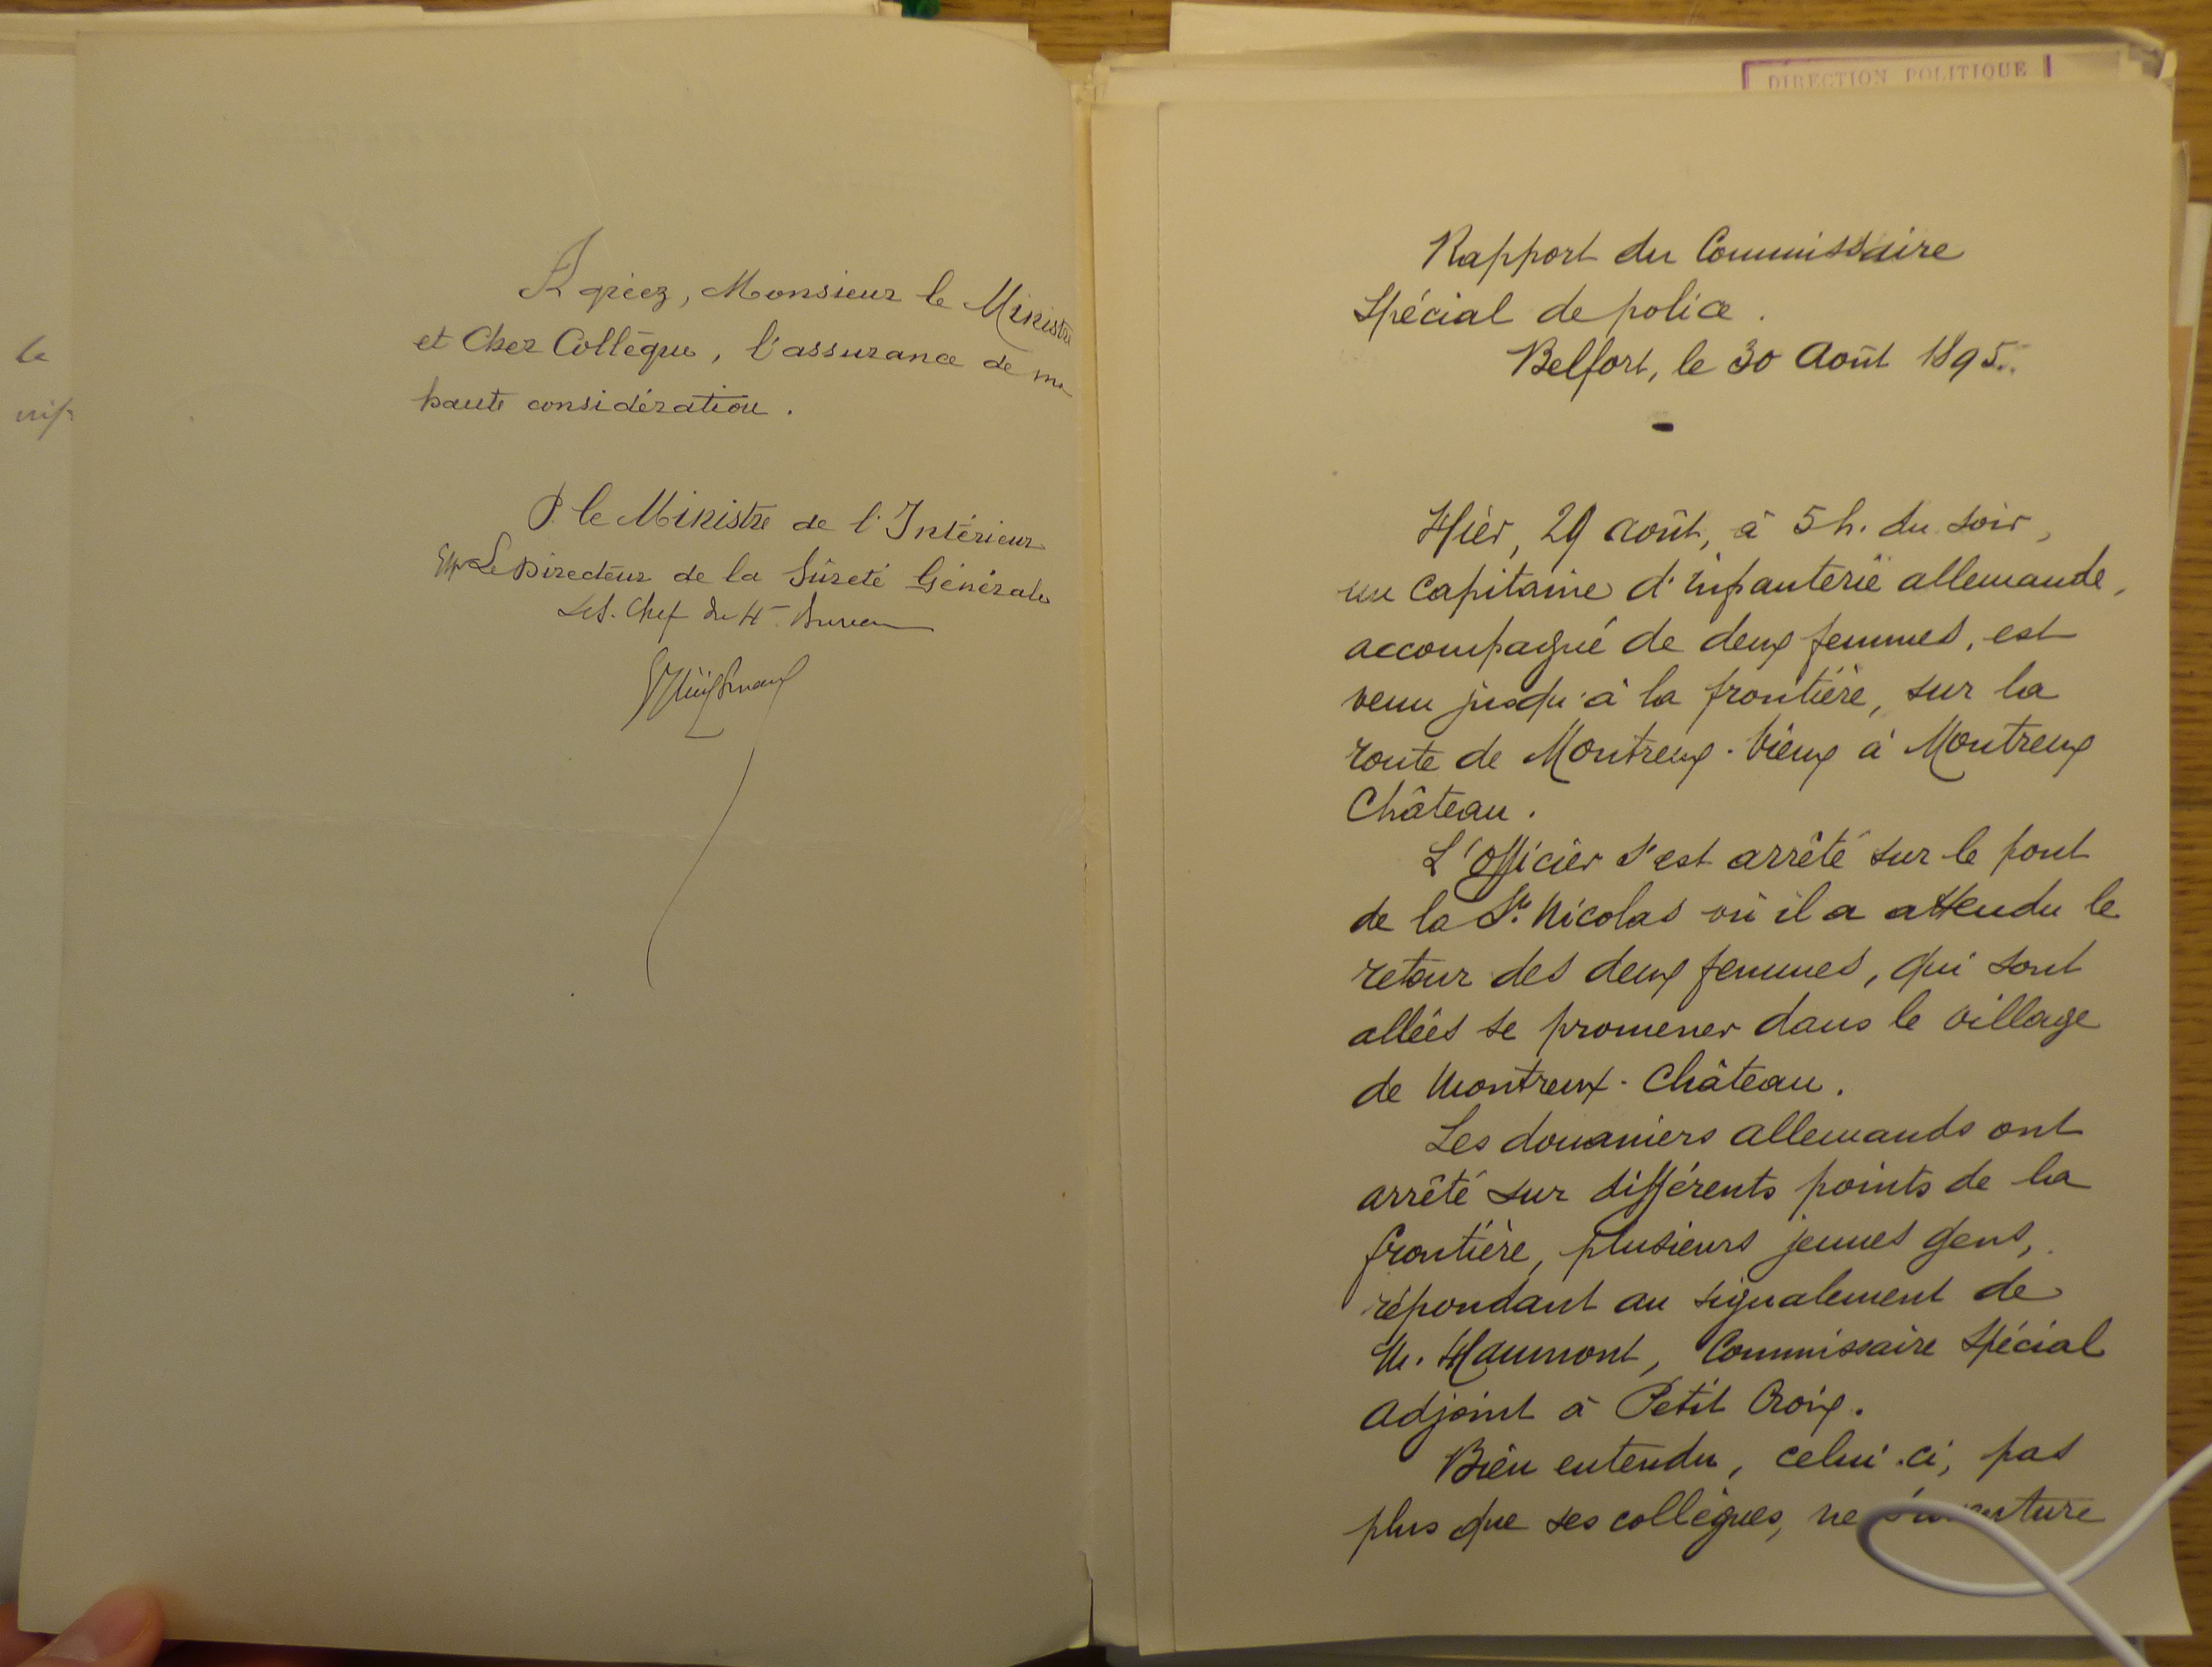 le
Agréez, Monsieur le Ministre
et Cher Collègue, l'assurance de ma
haute considération.
P. le Ministre de l'Intérieur
Le Directeur de la Sûreté Générale
Le S. Chef du 4e Bureau
DIRECTION POLITIQUE
Rapport du Commissaire
Spécial de police.
Belfort, le 30 Août 1895.
Hier, 29 août, à 5 h. du soir,
un Capitaine d'infanterie allemande,
accompagné de deux femmes, est
venu jusqu'à la frontière, sur la
route de Montreux-Vieux à Montreux
Château.
L'Officier s'est arrêté sur le pont
de la St. Nicolas où il a attendu le
retour des deux femmes, qui sont
allées se promener dans le village
de Montreux-Château.
Les douaniers allemands ont
arrêté sur différents points de la
frontière, plusieurs jeunes gens,
répondant au signalement de
M. Haumont, Commissaire Spécial
adjoint à Petit Croix.
Bien entendu, celui-ci, pas
plus que ses collègues, ne s'aventure